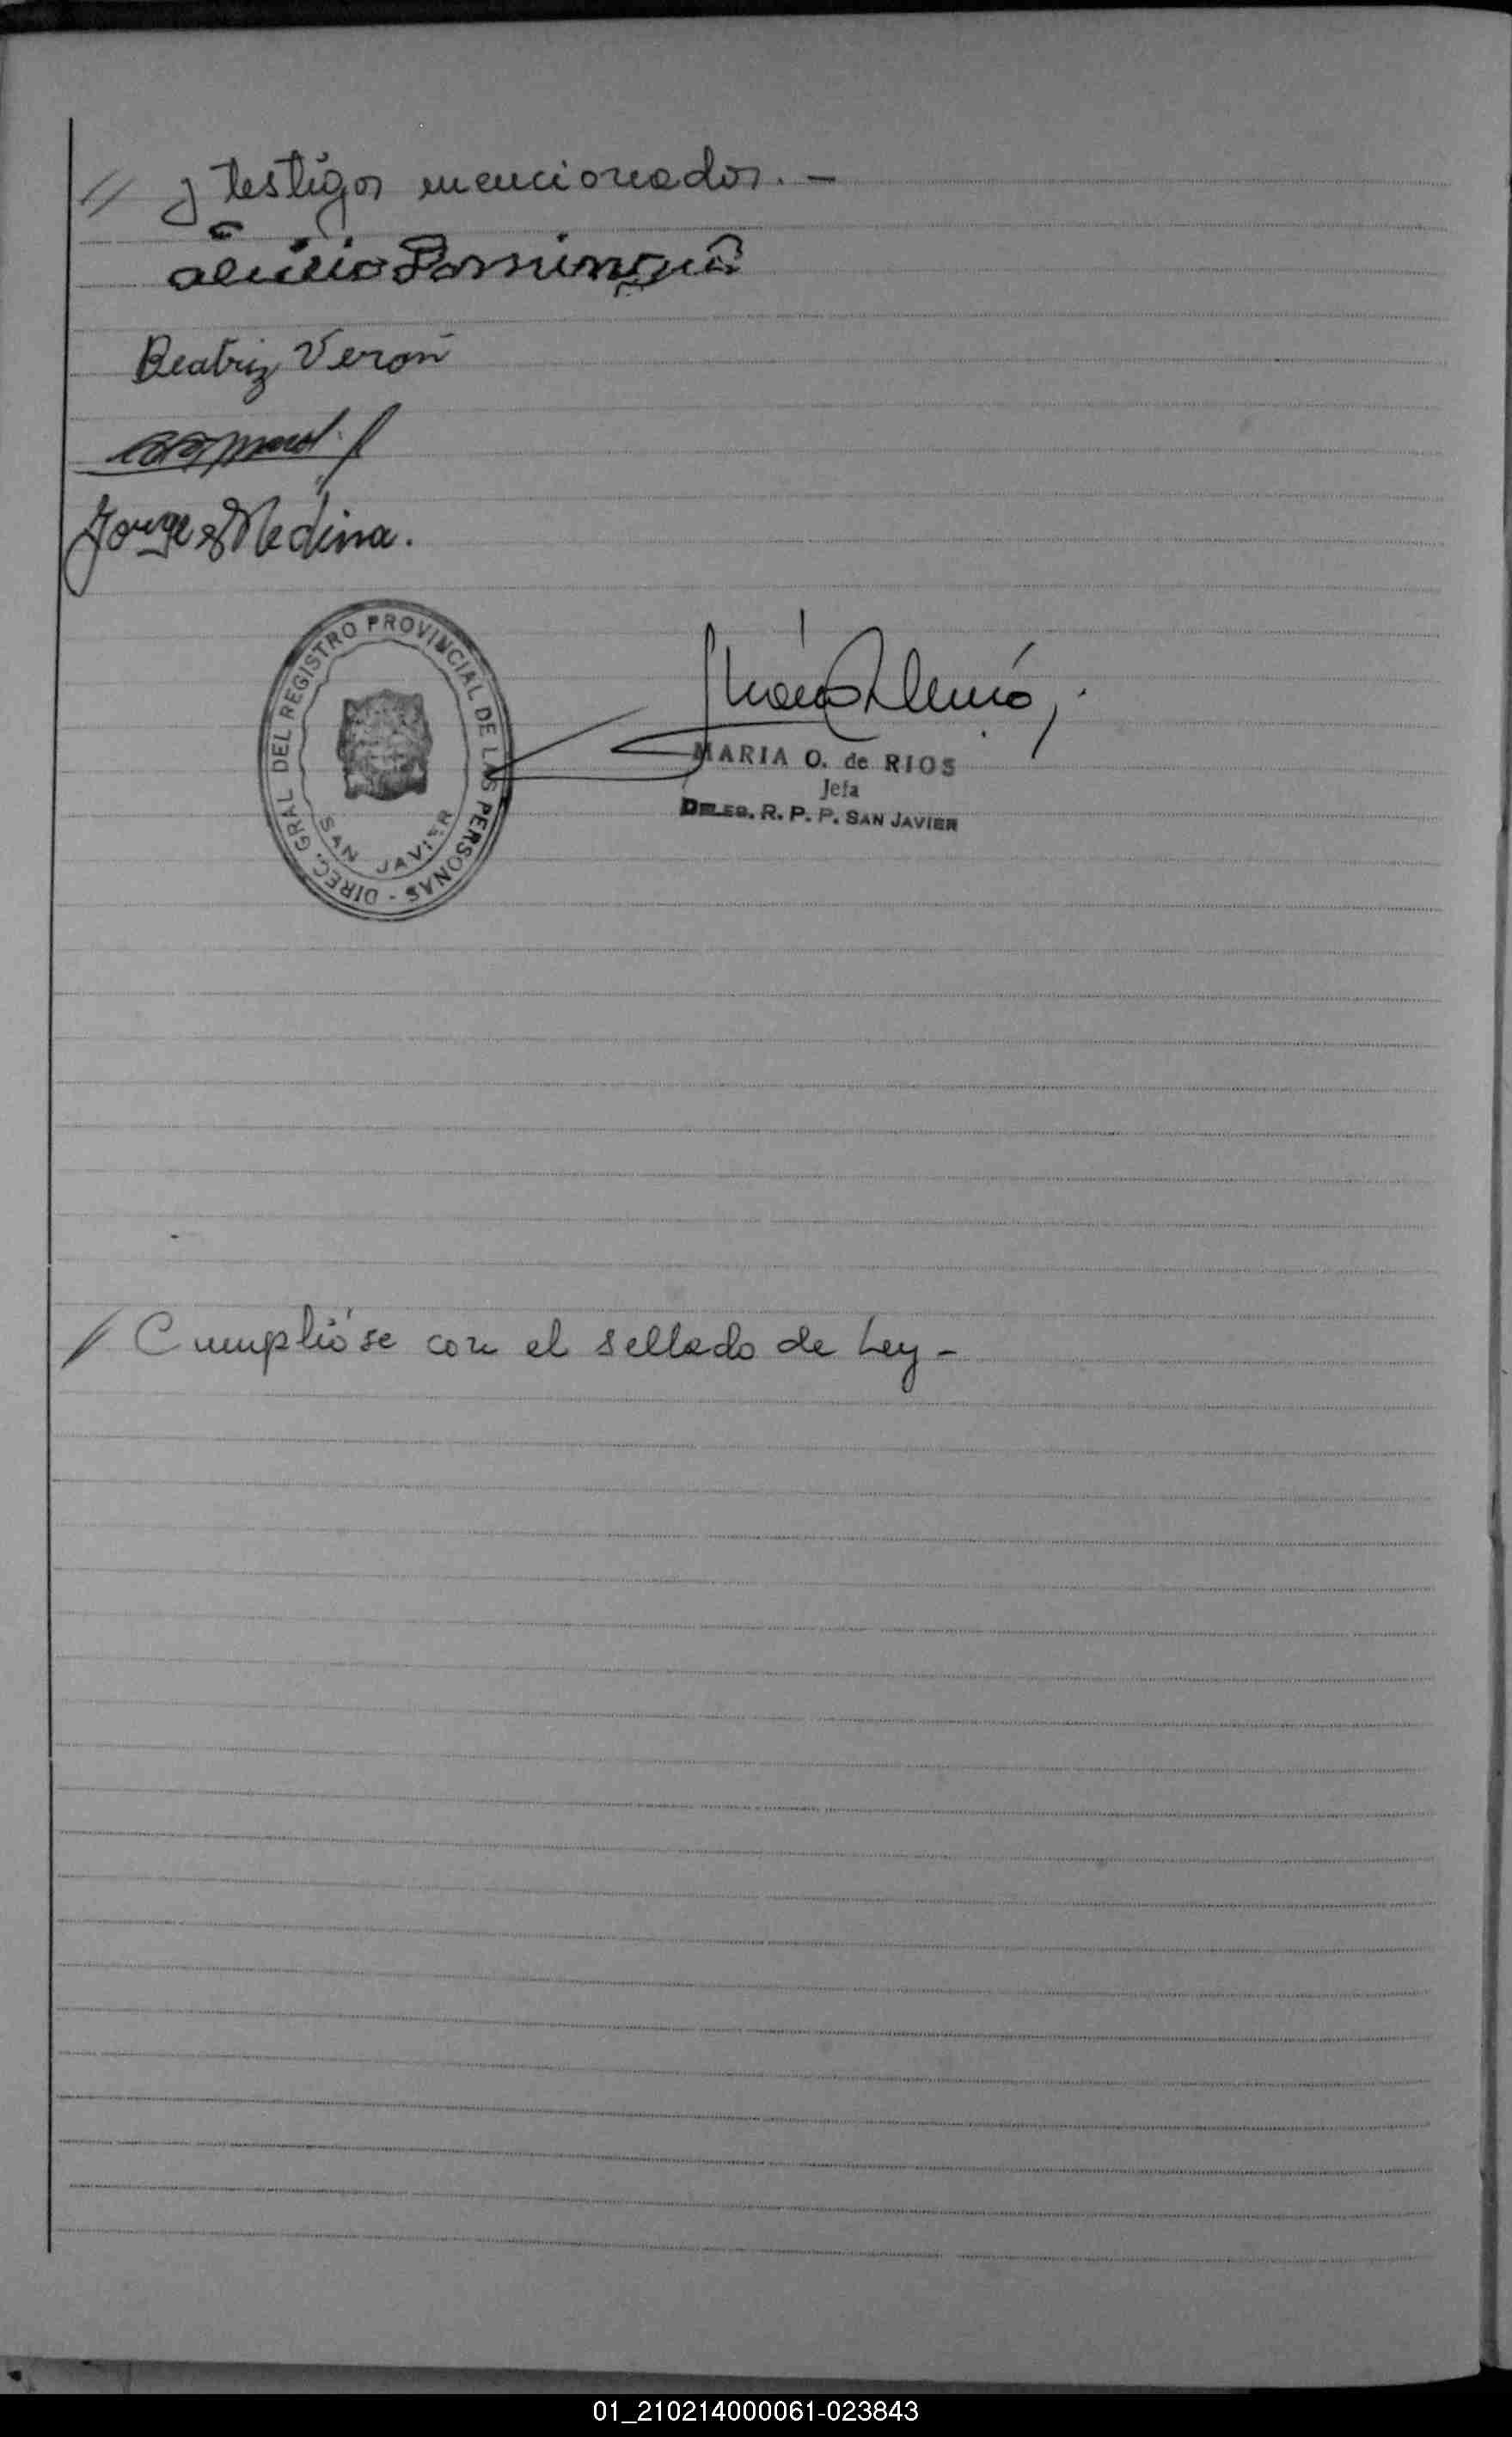 // y testigos mencionados. -
Beatriz Verón
Jorge Medina.
DIREC. GRAL DEL REGISTRO PROVINCIAL DE LAS PERSONAS -
SAN JAVIER
MARIA O. de RIOS
Jefa
DELEG. R. P. P. SAN JAVIER
/ Cumplióse con el sellado de Ley -
01_210214000061-023843